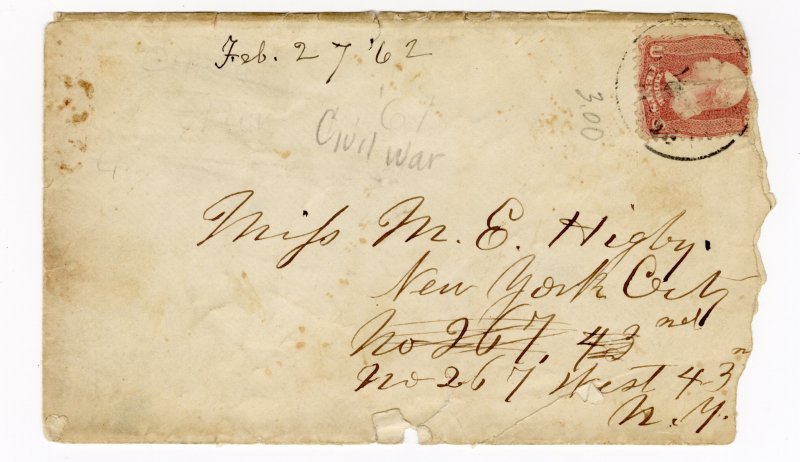 Feb. 27 '62
'61
Civil War
3.00
Miss M. E. Higby.
New York City
No 267, 43 nd
No 267 West 43
N.Y.